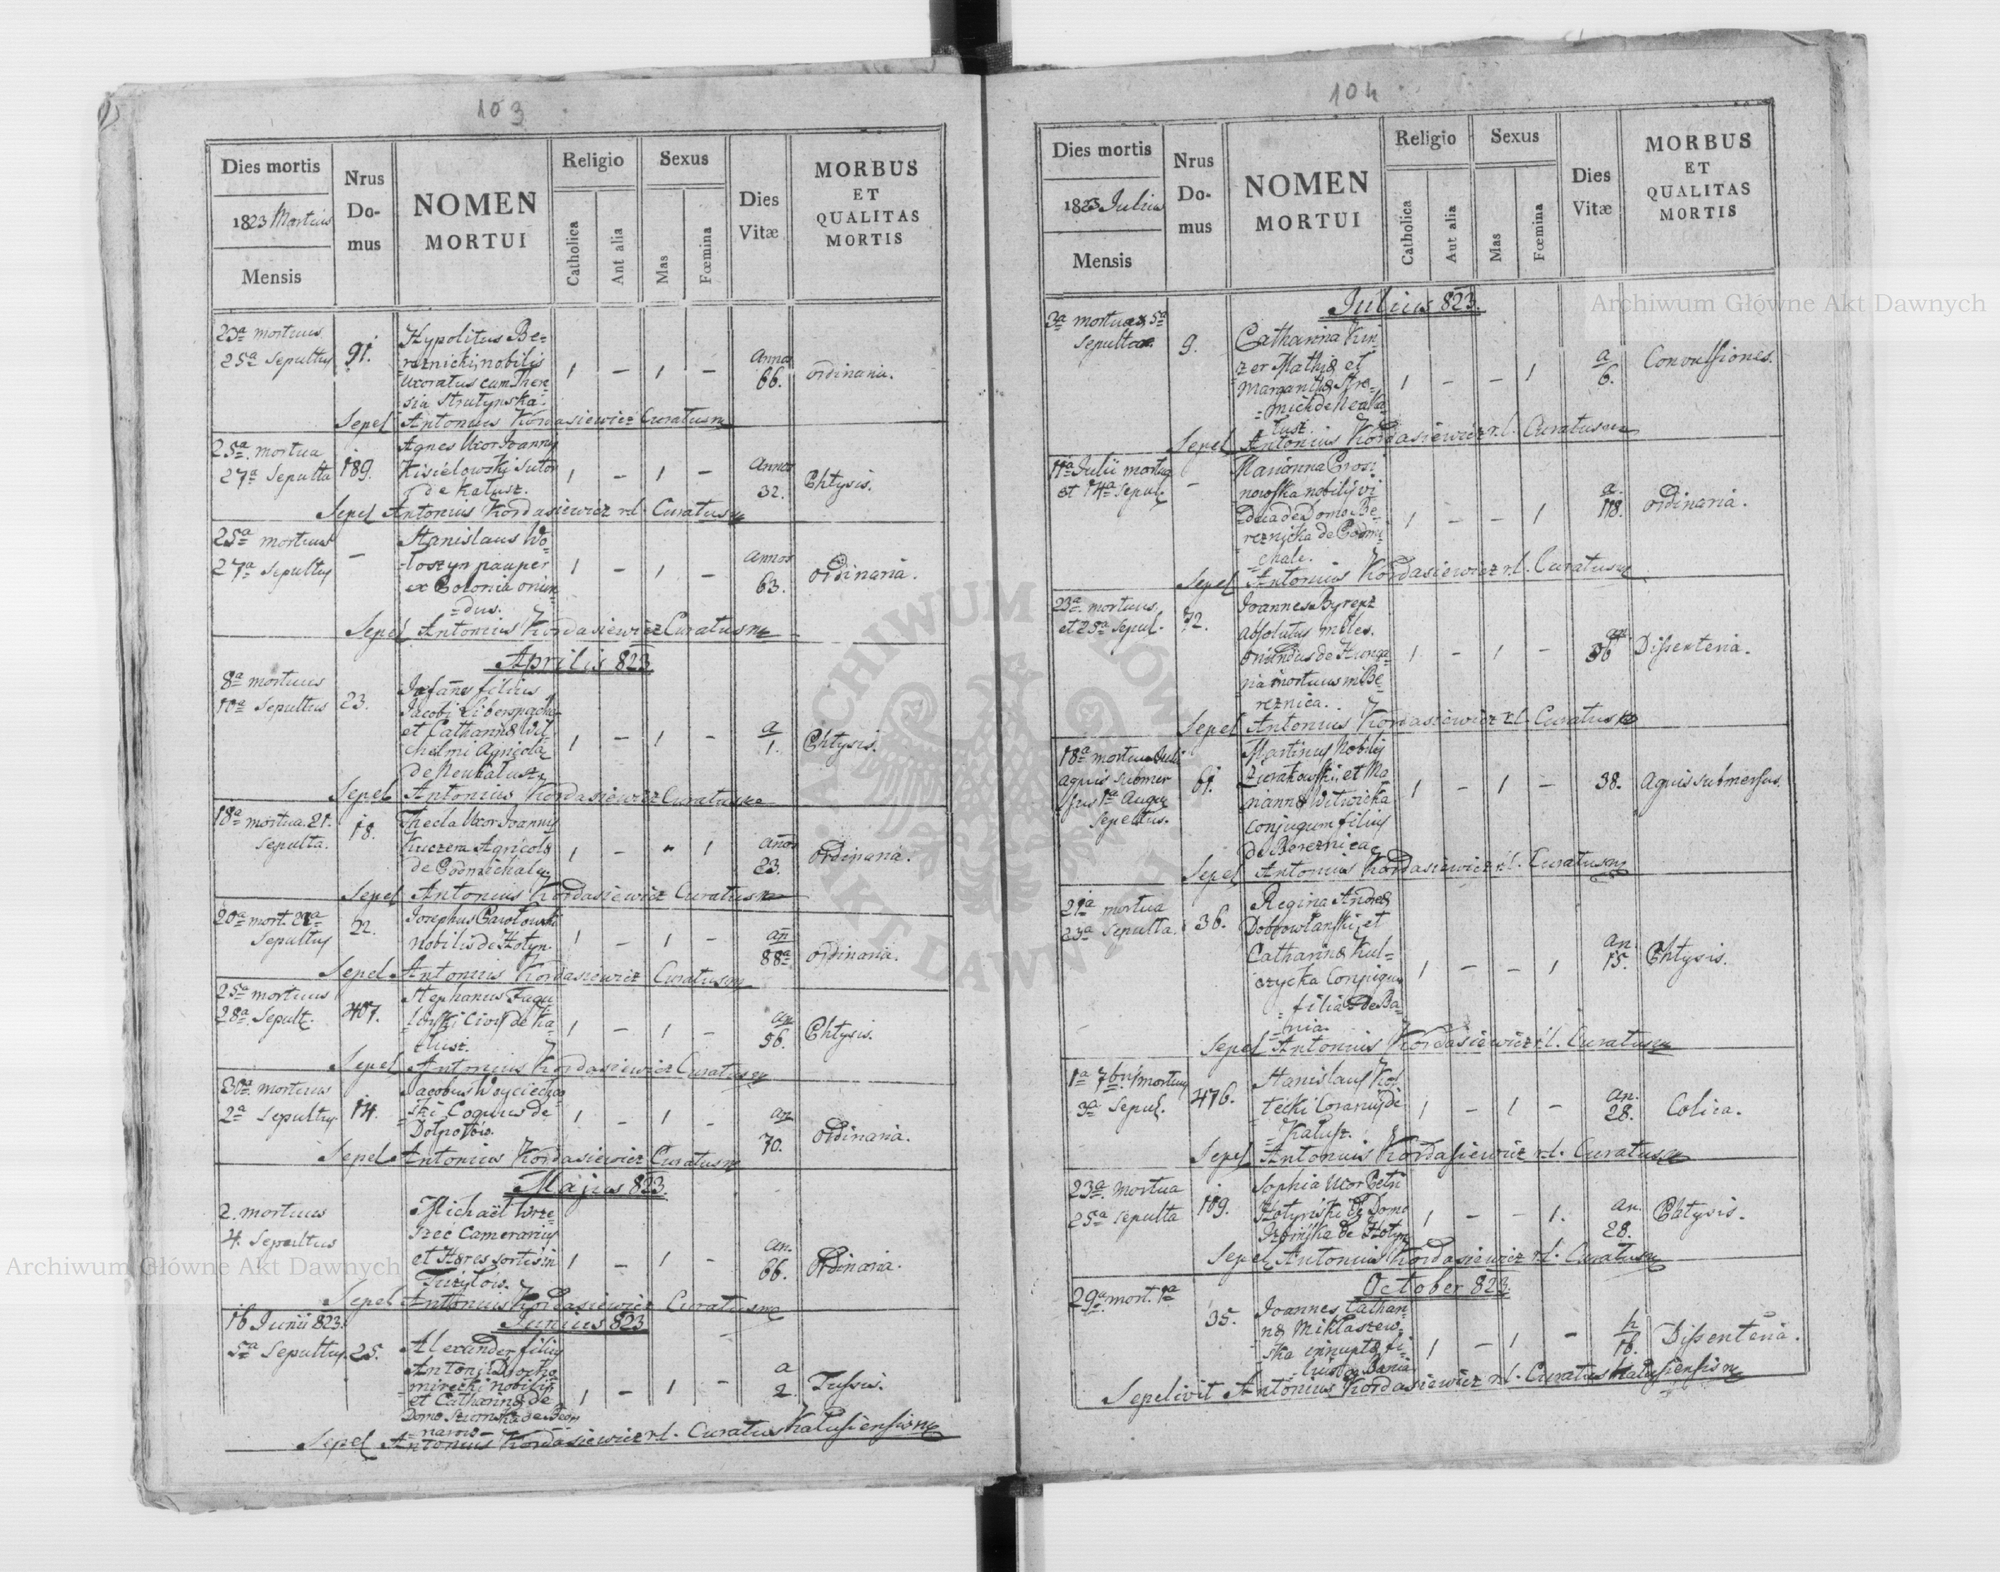 103
Dies mortis
1823 Martius
Mensis
Nrus
Do-
mus
NOMEN
MORTUI
Religio
Catholica
Aut alia
Sexus
Mas
Fœmina
Dies
Vitæ
MORBUS
ET
QUALITAS
MORTIS
23ª mortuus
25ª Sepultus
91.
Hypolitus Be-
reznicki, nobilis
Uxoratus cum There
sia Strutynska.
1 – 1 –
Annos
66.
ordinaria.
Sepel Antonius Kordasiewicz Curatus
25ª. mortua
27ª Sepulta
189.
Agnes Uxor Joannis
Kisielowski Sutor
de Kałusz.
1 – 1 –
Annos
32.
Phtysis.
Sepel Antonius Kordasiewicz r.l. Curatus
25ª mortuus
27ª Sepultus
–
Stanislaus Wo-
łoszyn pauper
ex Polonia oriun
dus.
1 – 1 –
annos
63.
Ordinaria.
Sepel Antonius Kordasiewicz Curatus
Aprilis 823
8ª mortuus
10ª Sepultus
23.
Infans filius
Jacobi
et Catharinæ Wil
helmi Agricola
de Neukalusz
1 – 1 –
a
1.
Phtysis.
Sepel Antonius Kordasiewicz Curatus
18ª mortua. 21.
Sepulta.
18.
Thecla Uxor Joannis
Kuczera Agricolæ
de Podmichale
1 – " 1
annos
23.
Ordinaria.
Sepel Antonius Kordasiewicz Curatus
20ª mort.
Sepultus
22.
Josephus Pawłowski
nobilis de Hołyn
1 – 1 –
an
88ª
ordinaria.
Sepel Antonius Kordasiewicz Curatus
25ª mortuus
28ª. Sepult.
407.
Stephanus
Civis de Ka-
łusz.
1 – 1 –
an
56.
Phtysis.
Sepel Antonius Kordasiewicz Curatus
30ª mortuus
2ª Sepultus
14.
Jacobus Woyciechow
ski Coquus de
1 – 1 –
an
70.
Ordinaria.
Sepel Antonius Kordasiewicz Curatus
Majus 823
2. mortuus
4. Sepultus
Michaël
Camerarius
et Hæres sortis in
1 – 1 –
an.
66.
Ordinaria.
Sepel Antonius Kordasiewicz Curatus
Junius 823
16 Junii 823.
Sepultus.
25.
Alexander filius
Antoni
nobilis
et Catharinæ de
Domo
1 – 1 –
a
2.
Tussis.
Sepel Antonius Kordasiewicz r.l. Curatus Kalusiensis
104
Dies mortis
1823 Julius
Mensis
Nrus
Do-
mus
NOMEN
MORTUI
Religio
Catholica
Aut alia
Sexus
Mas
Fœmina
Dies
Vitæ
MORBUS
ET
QUALITAS
MORTIS
Julius 823.
3ª mortua & 5ª
Sepulta.
9.
Catharina Kin-
zer Mathiæ et
Margarithæ
de Neuka
lusz.
1 – – 1
a
6.
Convulsiones.
Sepel Antonius Kordasiewicz r.l. Curatus
11ª Julii mortua
et 14ª Sepul.
–
Marianna
nobilis vi
dua de Domo Be-
reznicka de Podmi-
chale.
1 – – 1
a.
118.
Ordinaria.
Sepel Antonius Kordasiewicz r.l. Curatus
23ª. mortuus
et 25ª Sepul.
72.
Joannes
absolutus miles.
oriundus de Hunga
ria mortuus in Be-
reznica.
1 – 1 –
an
36
Dissenteria.
Sepel Antonius Kordasiewicz r.l. Curatus
18ª mortuus Julii
aquis submer
sus 1ª Augus
Sepultus.
61.
Martinus Nobilis
Zurakowski, et Ma
riannæ Witwicka
Conjugum filius
de Bereznica
1 – 1 –
38.
Aquis submersus.
Sepel Antonius Kordasiewicz r.l. Curatus
21ª mortua
23ª Sepulta.
36.
Regina Andreæ
Dobrowlanski, et
Catharinæ Kul-
czycka Conjugum
filia de Ba-
nia.
1 – – 1
an
15.
Phtysis.
Sepel Antonius Kordasiewicz r.l. Curatus
1ª 7bris mortuus
3ª Sepul.
476.
Stanislaus
de
Kałusz.
1 – 1 –
an.
28.
Colica.
Sepel Antonius Kordasiewicz r.l. Curatus
23ª. Mortua
25ª Sepulta
109.
Sophia Uxor Petri
Hołyński ex Domo
de Hołyn
1 – – 1.
an.
28.
Phtysis.
Sepel Antonius Kordasiewicz r.l. Curatus
October 823
29ª. mort. 1ª
35.
Joannes Cathari-
næ Miklaszew-
ska innuptæ fi-
lius de Bania
1 – 1 –
h
18.
Dissenteria.
Sepelivit Antonius Kordasiewicz r.l. Curatus Kalusiensis
Archiwum Główne Akt Dawnych
Archiwum Główne Akt Dawnych
ARCHIWUM GŁÓWNE AKT DAWNYCH